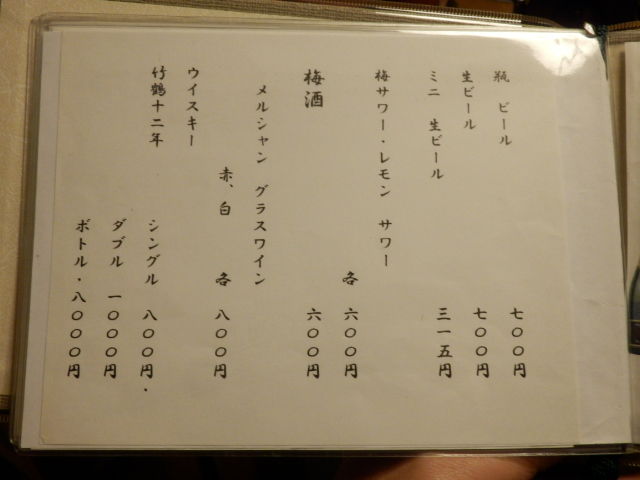 瓶 ビール 七〇〇円
生ビール 七〇〇円
ミニ 生ビール 三一五円
梅サワー・レモン サワー
各 六〇〇円
梅酒 六〇〇円
メルシャン グラスワイン
赤、白 各 八〇〇円
ウイスキー
竹鶴十二年
シングル 八〇〇円・
ダブル 一〇〇〇円
ボトル・八〇〇〇円